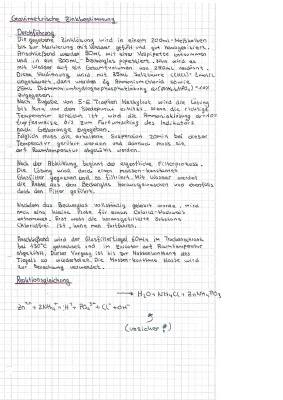 Gravimetrische Zinkbestimmung
Durchführung
Die gegebene Zinklösung wird in einem 200mL-Meßkolben
bis zur Markierung mit Wasser gefüllt und gut homogenisiert.
Anschließend werden 50mL mit einer Vollpipette entnommen
und in ein 800mL-Becherglas pipettiert. Nun wird es
mit Wasser auf ein Gesamtvolumen von 250mL verdünnt.
Diese Verdünnung wird mit Salzsäure
angesäuert, dann werden 2g Ammoniumchlorid sowie
25mL Diammoniumhydrogenphosphatlösung
zugegeben.
Nach Zugabe von 5-6 Tropfen Methylrot wird die Lösung
bis kurz vor dem Siedepunkt erhitzt. Wenn die richtige
Temperatur erreicht ist, wird die Ammoniaklösung
tropfenweise, bis zum Farbumschlag des Indikators
nach Gelborange zugegeben.
Folglich muss die erhaltene Suspension 20min bei dieser
Temperatur gerührt werden und danach muss sie
auf Raumtemperatur abgekühlt werden.
Nach der Abkühlung beginnt der eigentliche Filterprozess.
Die Lösung wird durch einen massenkonstanten
Glasfilter gegossen und so filtriert. Mit Wasser werden
die Reste aus dem Becherglas herausgewaschen und ebenfalls
durch den Filter geführt.
Nachdem das Becherglas vollständig geleert wurde, wird
man eine kleine Probe für einen Chlorid-Nachweis
entnommen. Erst wenn die herausgefilterte Substanz
Chloridfrei ist, kann man fortfahren.
Anschließend wird der Glasfiltertiegel 60min im Trockenschrank
bei 130°C getrocknet und im Exsikator auf Raumtemperatur
abgekühlt. Dieser Vorgang ist bis zur Massenkonstanz des
Tiegels zu wiederholen. Die Massenkonstante Masse wird
zur Berechnung verwendet.
Reaktionsgleichung
→ H₂O + NH₄Cl + ZnNH₄PO₄
Zn²⁺ + 2NH₄⁺ + H⁺ + PO₄³⁻ + Cl⁻ + OH⁻
(unsicher?)